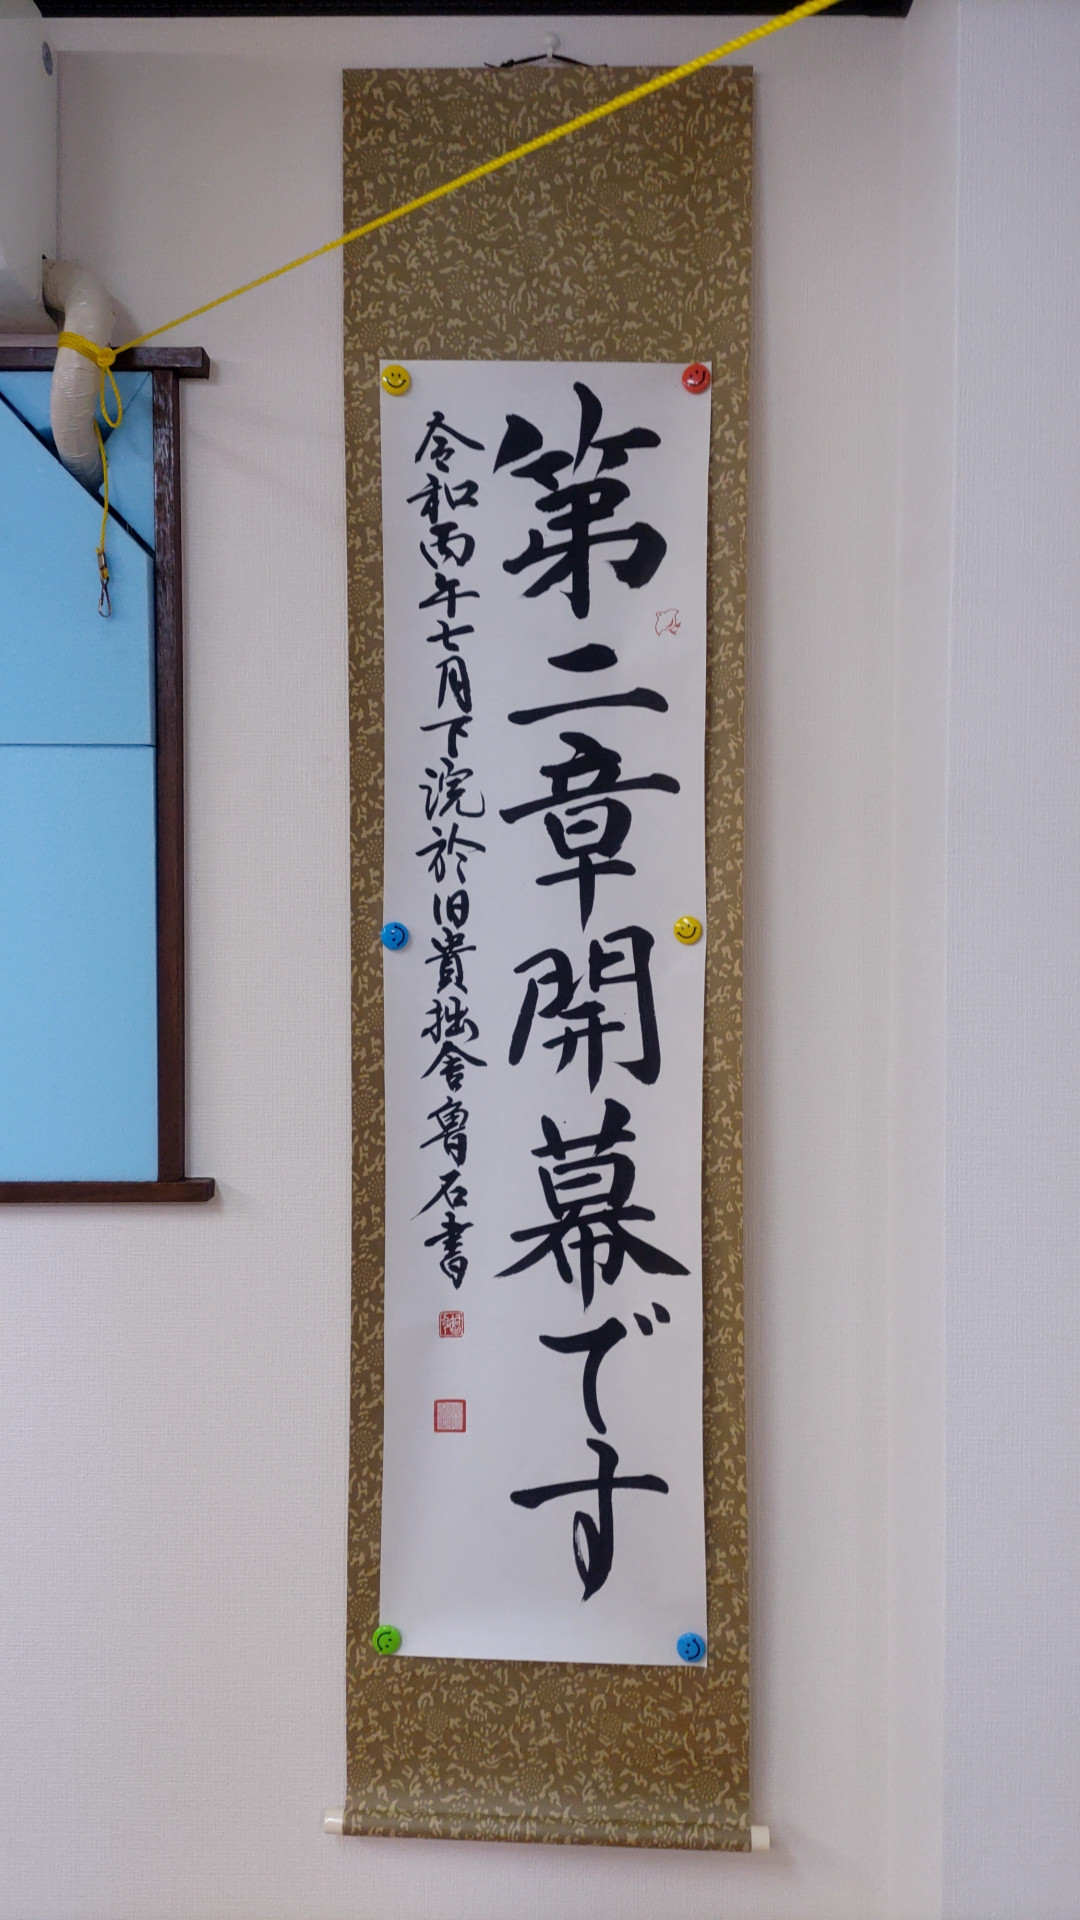 第二章開幕です
令和丙午七月下浣於旧貴拙舎魯石書